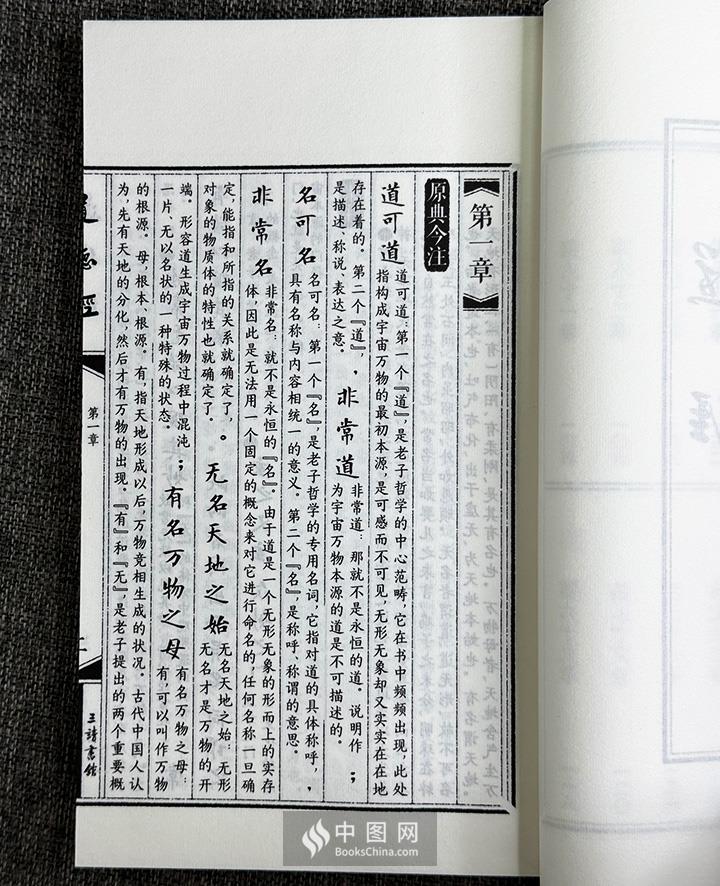 第一章
原典今注
道可道
道可道:第一个『道』,是老子哲学的中心范畴,它在书中频频出现,此处
指构成宇宙万物的最初本源,是可感而不可见,无形无象却又实实在在地
存在着的。第二个『道』,
是描述、称说、表达之意。
,非常道
非常道:那就不是永恒的道。说明作
为宇宙万物本源的道是不可描述的。
;
名可名
名可名:第一个『名』,是老子哲学的专用名词,它指对道的具体称呼,
具有名称与内容相统一的意义。第二个『名』,是称呼、称谓的意思。
,
非常名
非常名:就不是永恒的『名』。由于道是一个无形无象的形而上的实存
体,因此是无法用一个固定的概念来对它进行命名的,任何名称一旦确
定,能指和所指的关系就确定了,
对象的物质体的特性也就确定了。
。无名天地之始
无名天地之始:无形
无名才是万物的开
端。形容道生成宇宙万物过程中混沌
一片、无以名状的一种特殊的状态。
;有名万物之母
有名万物之母:
有,可以叫作万物
的根源。母,根本、根源。有,指天地形成以后,万物竞相生成的状况。古代中国人认
为,先有天地的分化,然后才有万物的出现。『有』和『无』,是老子提出的两个重要概
道德經
第一章
中图网
BooksChina.com